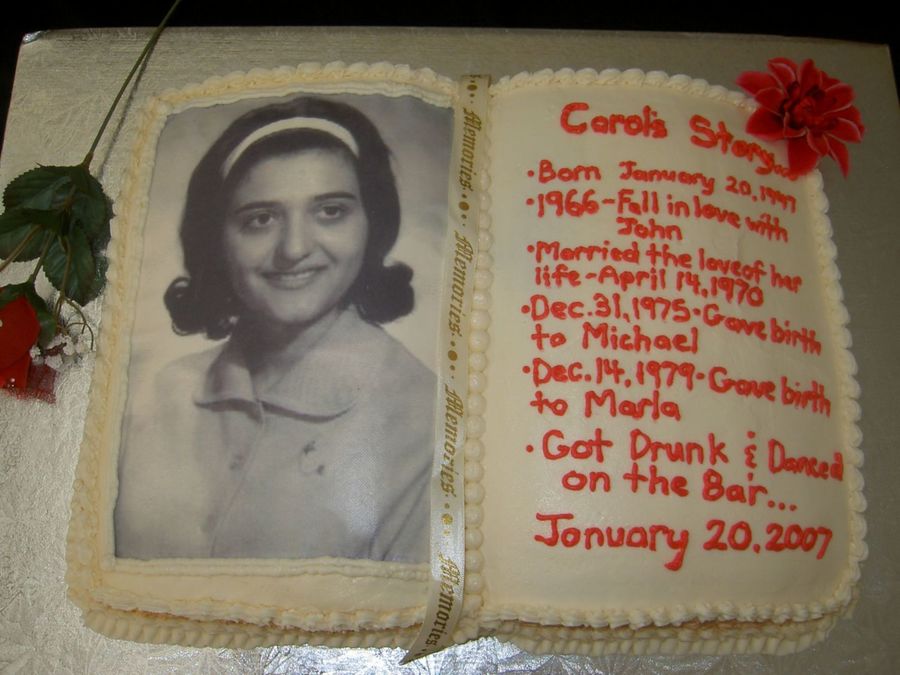 Carol's Story...
•Born January 20,1947
•1966-Fell in love with
John
•Married the love of her
life-April 14,1970
•Dec.31,1975-Gave birth
to Michael
•Dec.14,1979-Gave birth
to Marla
•Got Drunk & Danced
on the Bar...
January 20,2007
Memories
Memories
Memories
Memories